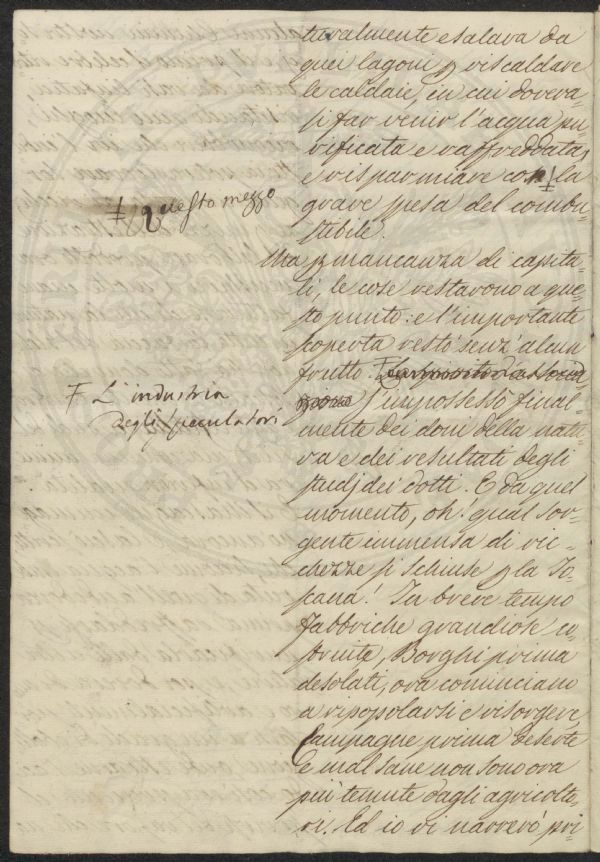 turalmente esalava da
quei lagoni p riscaldare
le caldaie, in cui doveva-
si far venir l'acqua pu-
rificata e raffreddata,
e risparmiare con ‡ la
grave spesa del combu-
stibile.
‡ Questo mezzo
Ma p mancanza di capita-
li, le cose restarono a que-
sto punto: e l'importante
scoperta restò senz'alcun
frutto. F
F L'industria
degli speculatori
s'impossessò final-
mente dei doni della natu-
ra e dei resultati degli
studj dei dotti. E da quel
momento, oh! qual sor-
gente immensa di ric-
chezze si schiuse p la To-
scana! In breve tempo
fabbriche grandiose co-
struite, Borghi prima
desolati, ora cominciano
a ripopolarsi e risorgere,
Campagne prima deserte
e mal sane non sono ora
più temute dagli agricolto-
ri. Ed io vi narrerò pri-